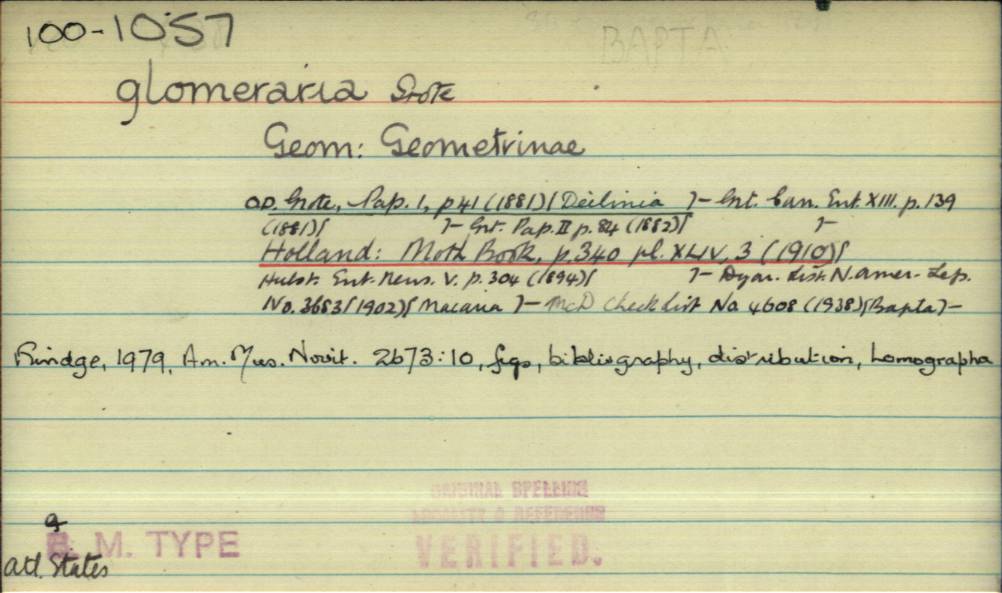 100-1057
BAPTA
glomeraria Grote
Geom: Geometrinae
OD. Grote, Pap. 1, p41 (1881)[Deilinia ]- Grt. Can. Ent. XIII. p. 139
(1881)[ ]- Grt. Pap. II p. 84 (1882)[ ]-
Holland: Moth Book, p.340 pl. XLIV, 3 (1910)[
Hulst. Ent. News. V. p. 304 (1894)[ ]- Dyar. List. N. Amer. Lep.
No. 3683 (1902)[Macaria ]- McD Check List No. 4608 (1938)[Bapta]-
Rindge, 1979, Am. Mus. Novit. 2673:10, figs, bibliography, distribution, Lomographa
ORIGINAL SPELLING
LOCALITY & REFERENCE
VERIFIED.
B. M. TYPE
atl. States